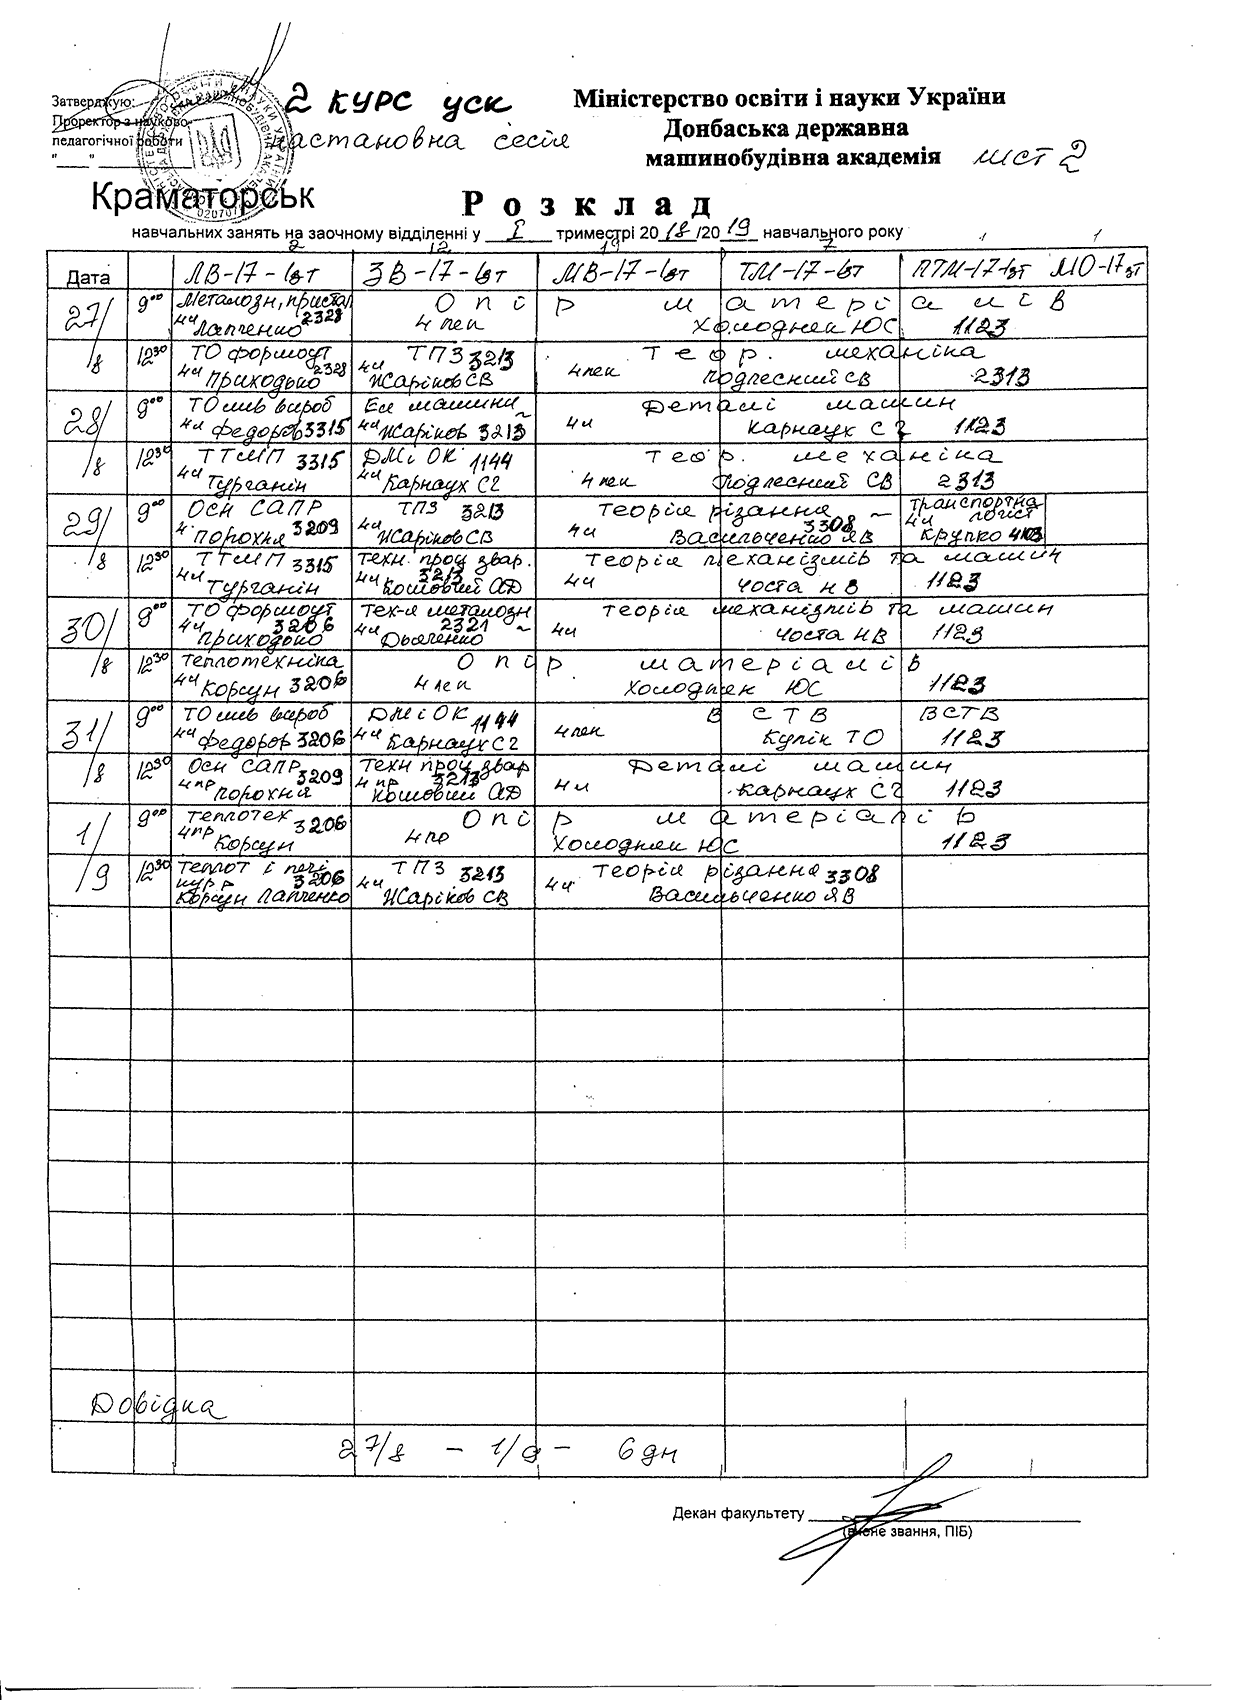 Затверджую:
Проректор з науково-
педагогічної роботи
"____"
2 курс уск
настановна сесія
Міністерство освіти і науки України
Донбаська державна
машинобудівна академія
лист 2
Краматорськ
Розклад
навчальних занять на заочному відділенні у I триместрі 2018/2019 навчального року
2 12 19 7 1 1
Дата ЛВ-17-1зт ЗВ-17-1зт МВ-17-1зт ТМ-17-1зт ПТМ-17-1зт МО-17зт
27/8 9⁰⁰ Металозн, 4ч Лапченко 2328 Опір матеріалів 4 лек Холодняк ЮС 1123
12³⁰ ТО формоут 4ч Приходько 2328 ТПЗ 3213 4ч Жаріков СВ Теор. механіка 4 лек Подлєсний СВ 2313
28/8 9⁰⁰ ТО лив вироб 4ч Федоров 3315 Ел машини 4ч Жаріков 3213 Деталі машин 4ч Карнаух СГ 1123
12³⁰ ТТМП 3315 4ч Турганін ДМіОК 1144 4ч Карнаух СГ Теор. механіка 4 лек Подлєсний СВ 2313
29/8 9⁰⁰ Осн САПР 4 Порохня 3209 ТПЗ 3213 4ч Жаріков СВ Теорія різання 3308 4ч Васильченко ЯВ Транспортна логіст 4ч Крупко 4103
12³⁰ ТТМП 3315 4ч Турганін Техн. проц звар. 3213 4ч Кошовий АД Теорія механізмів та машин 4ч Чоста НВ 1123
30/8 9⁰⁰ ТО формоут 3206 4ч Приходько Тех-я металозн 2321 4ч Дьяченко Теорія механізмів та машин 4ч Чоста НВ 1123
12³⁰ Теплотехніка 4ч Корсун 3206 Опір матеріалів 4 лек Холодняк ЮС 1123
31/8 9⁰⁰ ТО лив вироб 4ч Федоров 3206 ДМіОК 1144 4ч Карнаух СГ ВСТВ 4 лек Кулік ТО ВСТВ 1123
12³⁰ Осн САПР 3209 4пр Порохня Техн проц звар 3213 4 пр Кошовий АД Деталі машин 4ч Карнаух СГ 1123
1/9 9⁰⁰ Теплотех 3206 4пр Корсун Опір матеріалів 4пр Холодняк ЮС 1123
12³⁰ Теплот і печі 3206 Корсун Лапченко ТПЗ 3213 4ч Жаріков СВ Теорія різання 3308 4ч Васильченко ЯВ
Довідка
27/8 - 1/9 - 6дн
Декан факультету
(вчене звання, ПІБ)